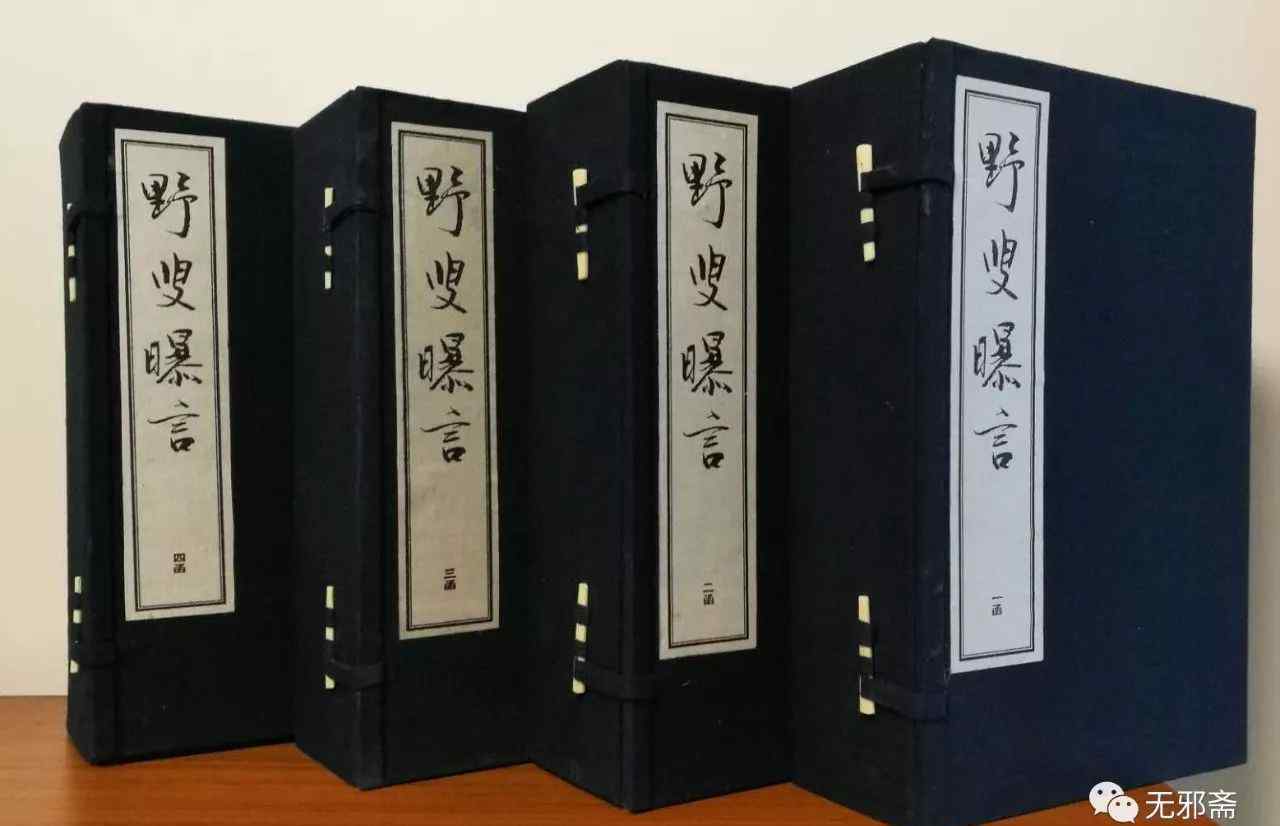 野叟曝言
四函
野叟曝言
三函
野叟曝言
二函
野叟曝言
一函
无邪斋